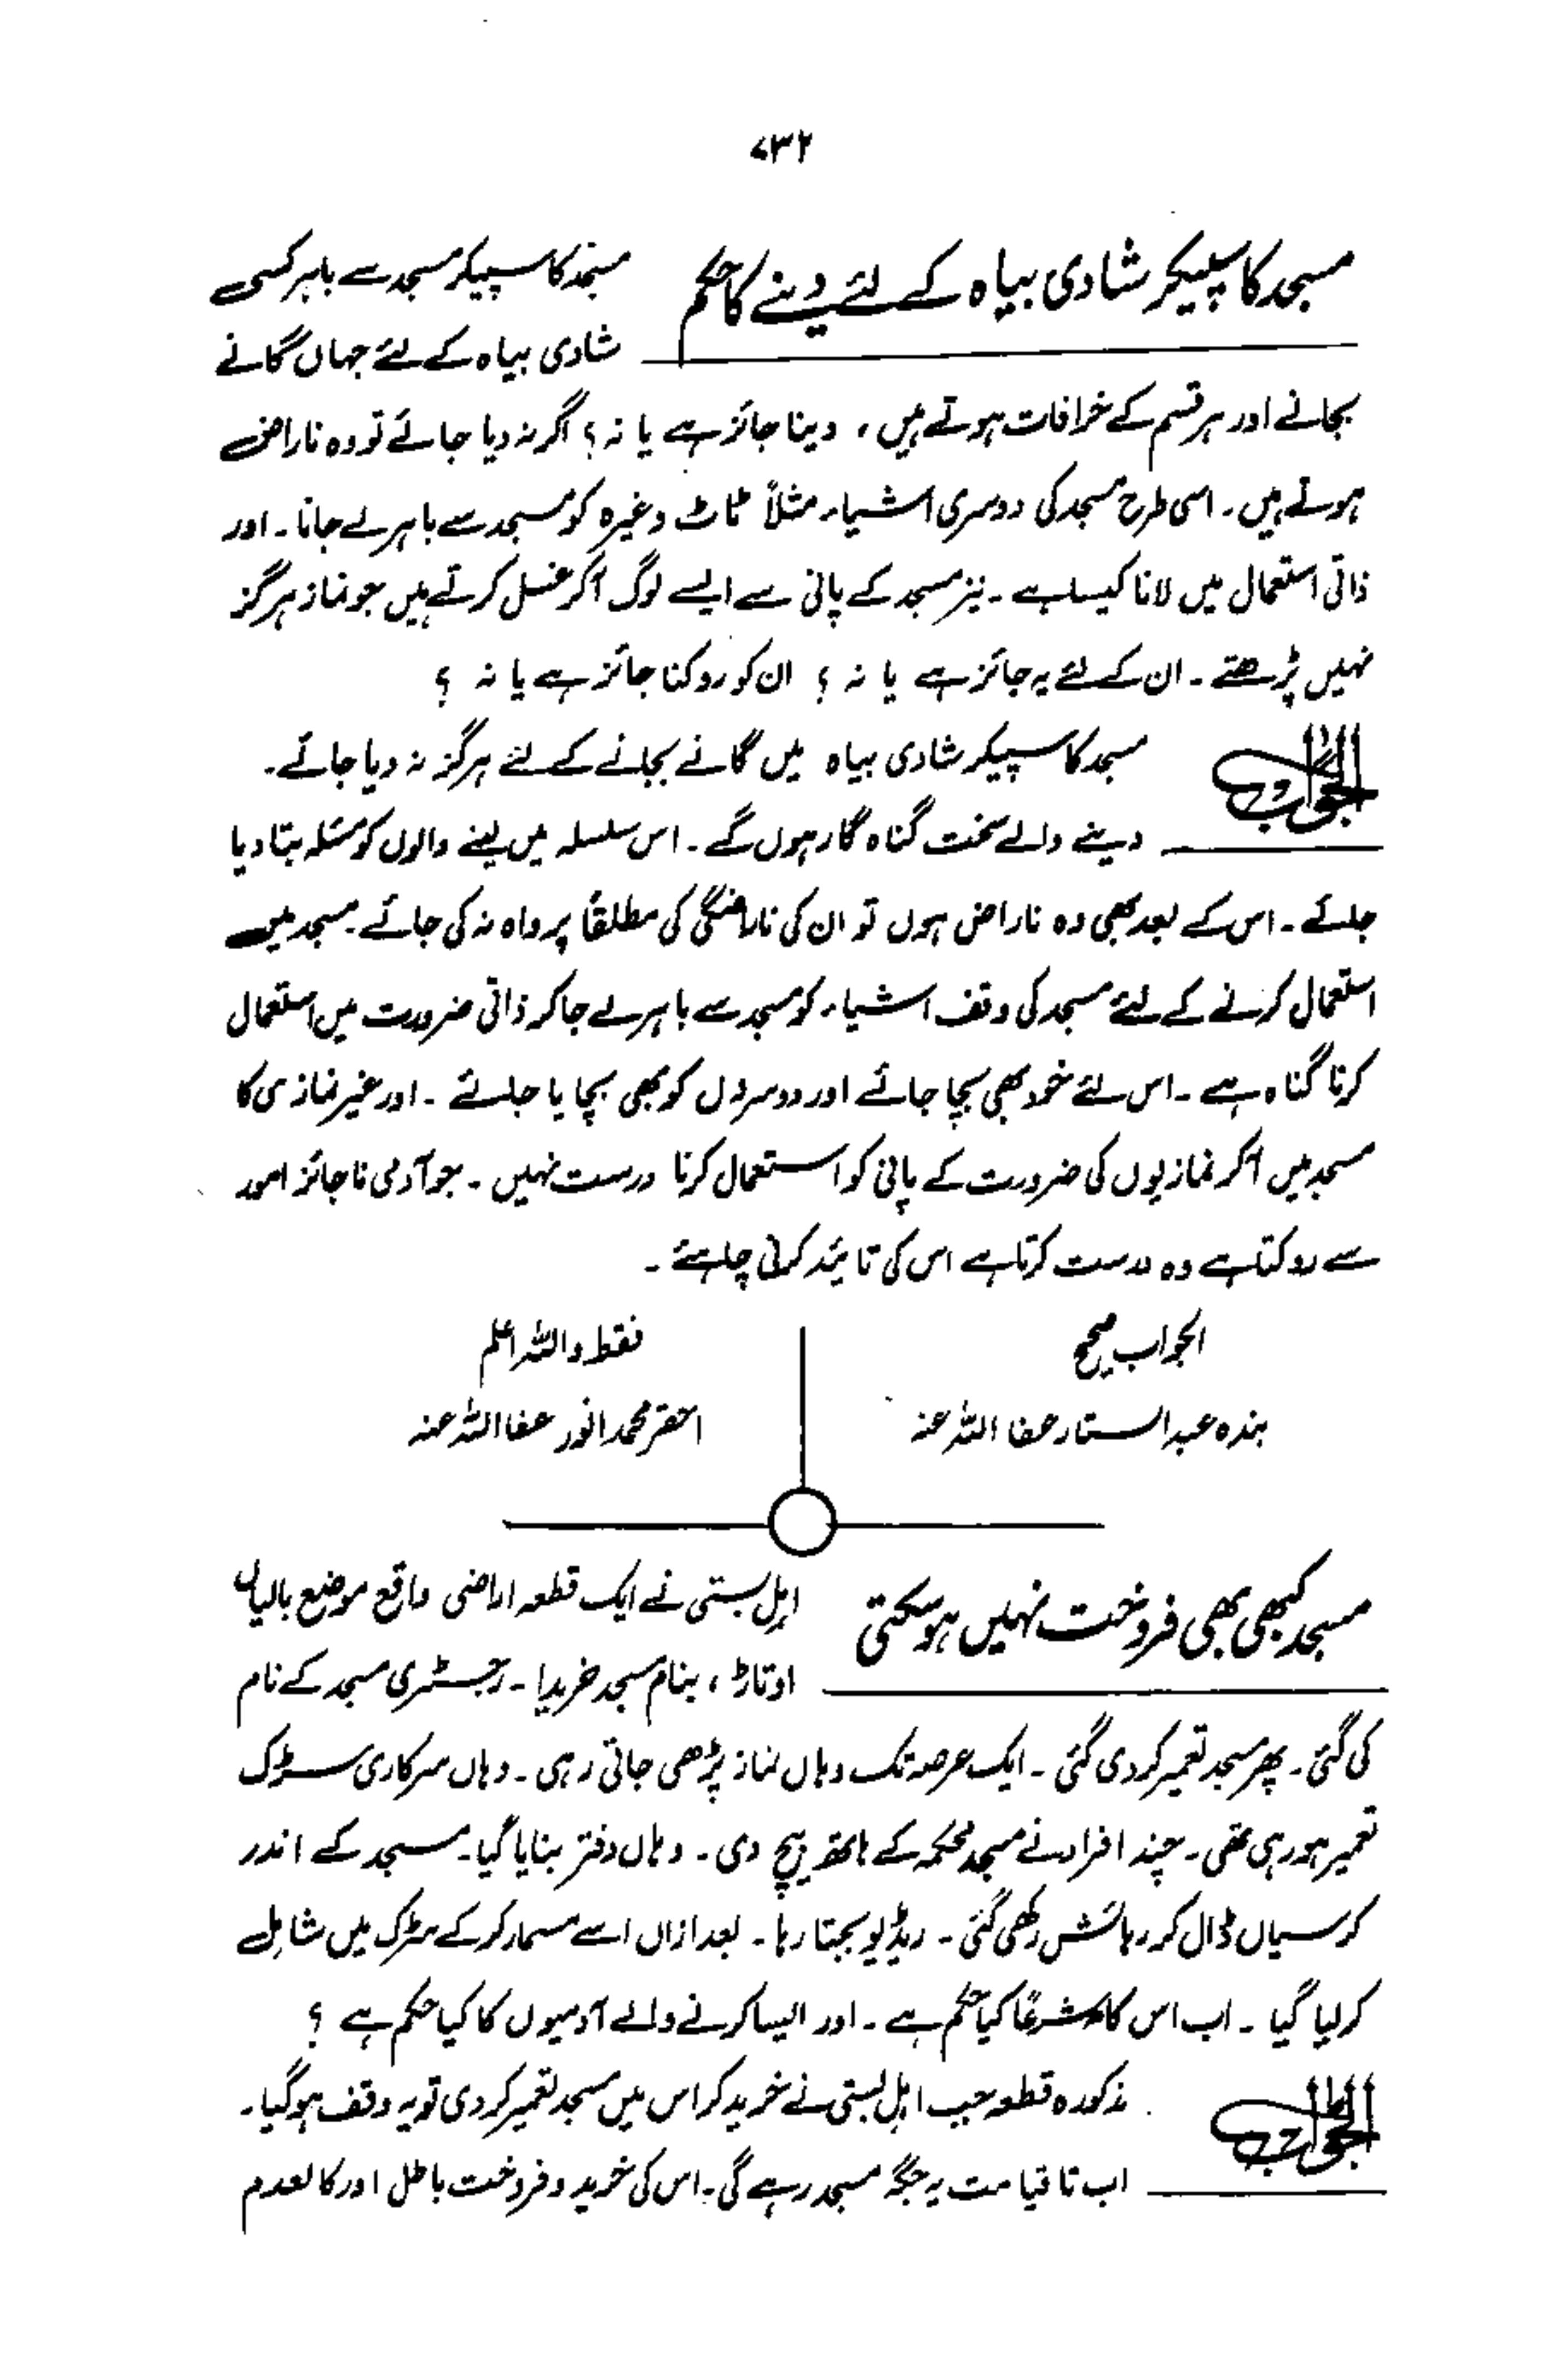 ۷۳۲
مسجد کا سپیکر شادی بیاہ کے لئے دینے کا حکم
مسجد کا سپیکر مسجد سے باہر کسی
شادی بیاہ کے لئے جہاں گانے
بجانے اور ہر قسم کے خرافات ہوتے ہیں ، دینا جائز ہے یا نہ ؟ اگر نہ دیا جائے تو وہ ناراض
ہوتے ہیں ۔ اسی طرح مسجد کی دوسری اشیاء مثلاً ٹاٹ وغیرہ کو مسجد سے باہر لے جانا ۔ اور
ذاتی استعمال میں لانا کیسا ہے ۔ نیز مسجد کے پانی سے ایسے لوگ اکثر غسل کرتے ہیں جو نماز ہرگز
نہیں پڑھتے ۔ ان کے لئے یہ جائز ہے یا نہ ؟ ان کو روکنا جائز ہے یا نہ ؟
الجواب
مسجد کا سپیکر شادی بیاہ میں گانے بجانے کے لئے ہرگز نہ دیا جائے ۔
دینے والے سخت گناہ گار ہوں گے ۔ اس سلسلہ میں لینے والوں کو مسئلہ بتا دیا
جائے ۔ اس کے بعد بھی وہ ناراض ہوں تو ان کی ناراضگی کی مطلقاً پرواہ نہ کی جائے ۔ مسجد میں
استعمال کرنے کے لئے مسجد کی وقف اشیاء کو مسجد سے باہر لے جا کر ذاتی ضرورت میں استعمال
کرنا گناہ ہے ۔ اس لئے خود بھی بچا جائے اور دوسروں کو بھی بچایا جائے ۔ اور غیر نمازی کا
مسجد میں آکر نمازیوں کی ضرورت کے پانی کو استعمال کرنا درست نہیں ۔ جو آدمی ناجائز امور
سے روکتا ہے وہ درست کرتا ہے اس کی تائید کرنی چاہئے ۔
الجواب صحیح
بندہ عبدالستار عفا اللہ عنہ
فقط واللہ اعلم
احقر محمد انور عفا اللہ عنہ
مسجد کبھی بھی فروخت نہیں ہو سکتی
اہل بستی نے ایک قطعہ اراضی واقع موضع بالیاں
اوتاڑ ، بنام مسجد خریدا ۔ رجسٹری مسجد کے نام
کی گئی ۔ پھر مسجد تعمیر کر دی گئی ۔ ایک عرصہ تک وہاں نماز پڑھی جاتی رہی ۔ وہاں سرکاری سڑک
تعمیر ہو رہی تھی ۔ چند افراد نے مسجد محکمہ کے ہاتھ بیچ دی ۔ وہاں دفتر بنایا گیا ۔ مسجد کے اندر
کرسیاں ڈال کر رہائش رکھی گئی ۔ ریڈیو بجتا رہا ۔ بعد ازاں اسے مسمار کر کے سڑک میں شامل
کر لیا گیا ۔ اب اس کا شرعًا کیا حکم ہے ۔ اور ایسا کرنے والے آدمیوں کا کیا حکم ہے ؟
الجواب
مذکورہ قطعہ جب اہل بستی نے خرید کر اس میں مسجد تعمیر کر دی تو یہ وقف ہو گیا ۔
اب تا قیامت یہ جگہ مسجد رہے گی ۔ اس کی خرید و فروخت باطل اور کالعدم